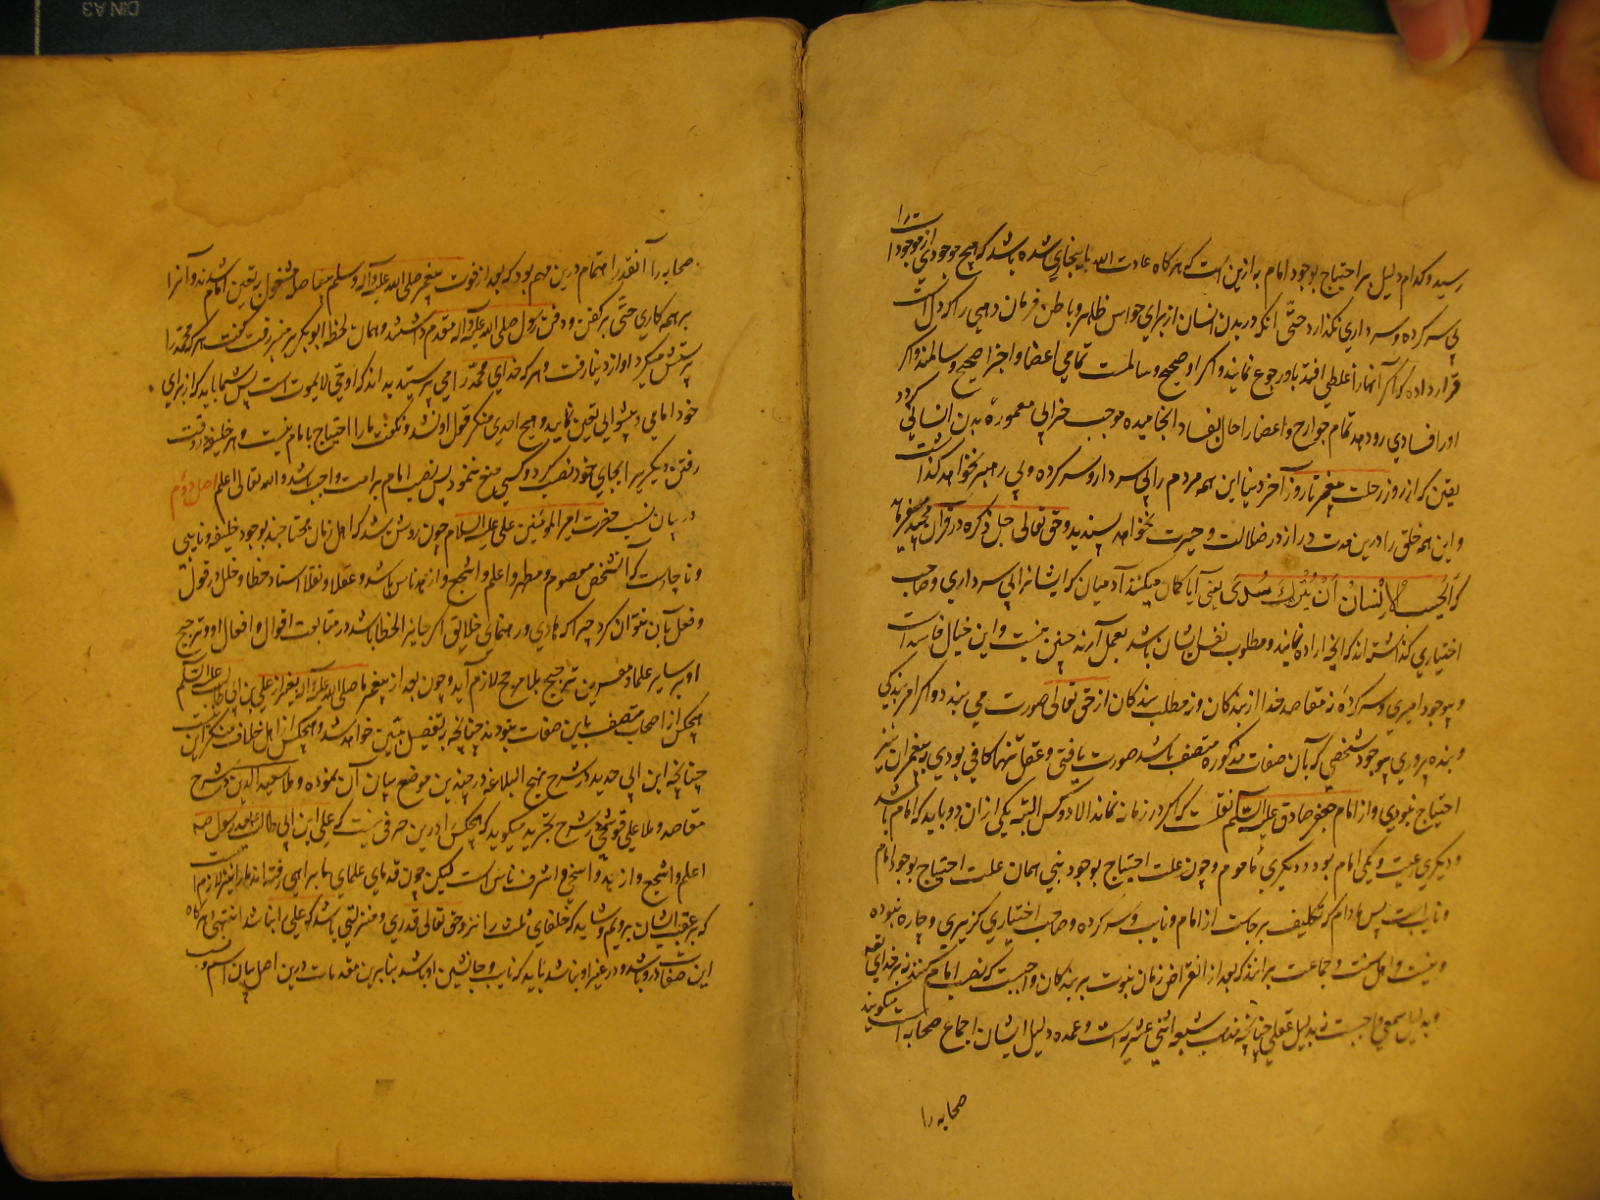 رسید و کدام دلیل بر احتیاج بوجود امام به ازین است که هرگاه عادت الله باین جاری شده باشد که هیچ موجودی از موجودات را
بی سرکرده و سرداری نگذارد حتی آنکه در بدن انسان از برای حواس ظاهر و باطن فرمان دهی را که دل است
قرار داده که اگر آنها را غلطی افتد باو رجوع نمایند و اگر او صحیح و سالمست تمامی اعضا و اجزا صحیح و سالمند و اگر
او را فسادی رو دهد تمام جوارح و اعضا را حال بفساد انجامیده موجب خرابی معموره بدن انسانی گردد
یقین که از روز رحلت پیغمبر تا روز آخر دنیا این همه مردم را بی سردار و سرکرده و بی رهبر نخواهد گذاشت
و این همه خلق را درین مدت دراز در ضلالت و حیرت نخواهد پسندید و حق تعالی جل ذکره در قرآن مجید میفرماید
که أَيَحْسَبُ الْإِنْسَانُ أَنْ يُتْرَكَ سُدًى یعنی آیا گمان میکنند آدمیان که ایشانرا بی سرداری و صاحب
اختیاری گذاشته اند که آنچه اراده نمایند و مطلوب نفس ایشان باشد بعمل آرند چنین نیست و این خیال فاسد است
و بی وجود امیری و سرکرده نه مقاصد خدا از بندگان و نه مطلب بندگان از حق تعالی صورت می بندد و اگر امر بندگی
و بنده پروری بی وجود شخصی که بآن صفات مذکوره متصف باشد صورت یافتی و عقل تنها کافی بودی به پیغمبران نیز
احتیاج نبودی و از امام جعفر صادق علیه السلام نقلست که اگر در زمانه نماند الا دو کس البته یکی ازان دو باید که امام باشد
و دیگری رعیت و یکی امام بود و دیگری مأموم و چون علت احتیاج بوجود نبی همان علت احتیاج بوجود امام
و نایب است پس مادام که تکلیف برجاست از امام و نایب و سرکرده و صاحب اختیاری گزیری و چاره نبوده
و نیست و اهل سنت و جماعت برانند که بعد از انقراض زمان نبوت بر بندگان واجبست که نصب امام کنند نه بر خدای تعالی
و بدلیل سمعی واجبست نه بدلیل عقلی چنانچه مذهب شیعه اثنی عشریه است و عمده دلیل ایشان اجماع صحابه است میگویند
صحابه را
صحابه را آنقدر اهتمام درین مهم بود که بعد از فوت پیغمبر صلی الله علیه و آله و سلم بیفاصله مشغول بتعین امام شدند و آنرا
بر همه کاری حتی بر کفن و دفن رسول صلی الله علیه و آله مقدم داشتند و همان لحظه ابوبکر بر منبر رفت گفت هر که محمد را
پرستش میکرد او از دنیا رفت و هر که خدای محمد را می پرستید بداند که او حی لا یموت است پس شما باید که از برای
خود امامی و پیشوایی تعین نمایید و هیچ احدی منکر قول او نشد و نگفت ما را احتیاج بامام نیست و هر خلیفه در وقت
رفتن دیگریرا بجای خود نصب کرد و کسی منع ننمود پس نصب امام بر امت واجب باشد والله تعالی اعلم اصل دوم
در بیان نسب حضرت امیر المؤمنین علی علیه السلام چون روشن شد که اهل زمان محتاجند بوجود خلیفه و نایبی
و ناچارست که آن شخص معصوم و مطهر و اعلم و اشجع و ازهد ناس باشد و عقلا و نقلا اسناد خطا و خلل در قول
و فعل بآن نتوان کرد چرا که هادی و رهنمای خلایق اگر جایز الخطا باشد در متابعت اقوال و افعال او و ترجیح
او بر سایر علما و معمرین ترجیح بلا مرجح لازم آید و چون بعد از پیغمبر ما صلی الله علیه و آله بغیر از علی بن ابی طالب علیه السلم
هیچکس از اصحاب متصف باین صفات نبودند چنانچه بتفصیل مبین خواهد شد و هیچکس از اهل خلاف منکر این
چنانچه ابن ابی حدید در شرح نهج البلاغه در چندین موضع بیان آن نموده و ملا سعد الدین در شرح
مقاصد و ملا علی قوشچی در شرح تجرید میگوید که هیچکس را درین حرفی نیست که علی ابن ابی طالب بعد رسول صه
اعلم و اشجع و ازهد و اسخی و اشرف ناس است لیکن چون قدمای علمای ما براهی رفته اند ما را نیز لازم است
که بر عقب ایشان برویم و شاید که خلفای ثلث را نزد حق تعالی قدری و منزلتی باشد که علی را نباشد انتهی هرگاه
این صفات درو باشد و در غیر او نباشد باید که نایب و جانشین او باشد بنا برین مقدمات درین اصل بیان